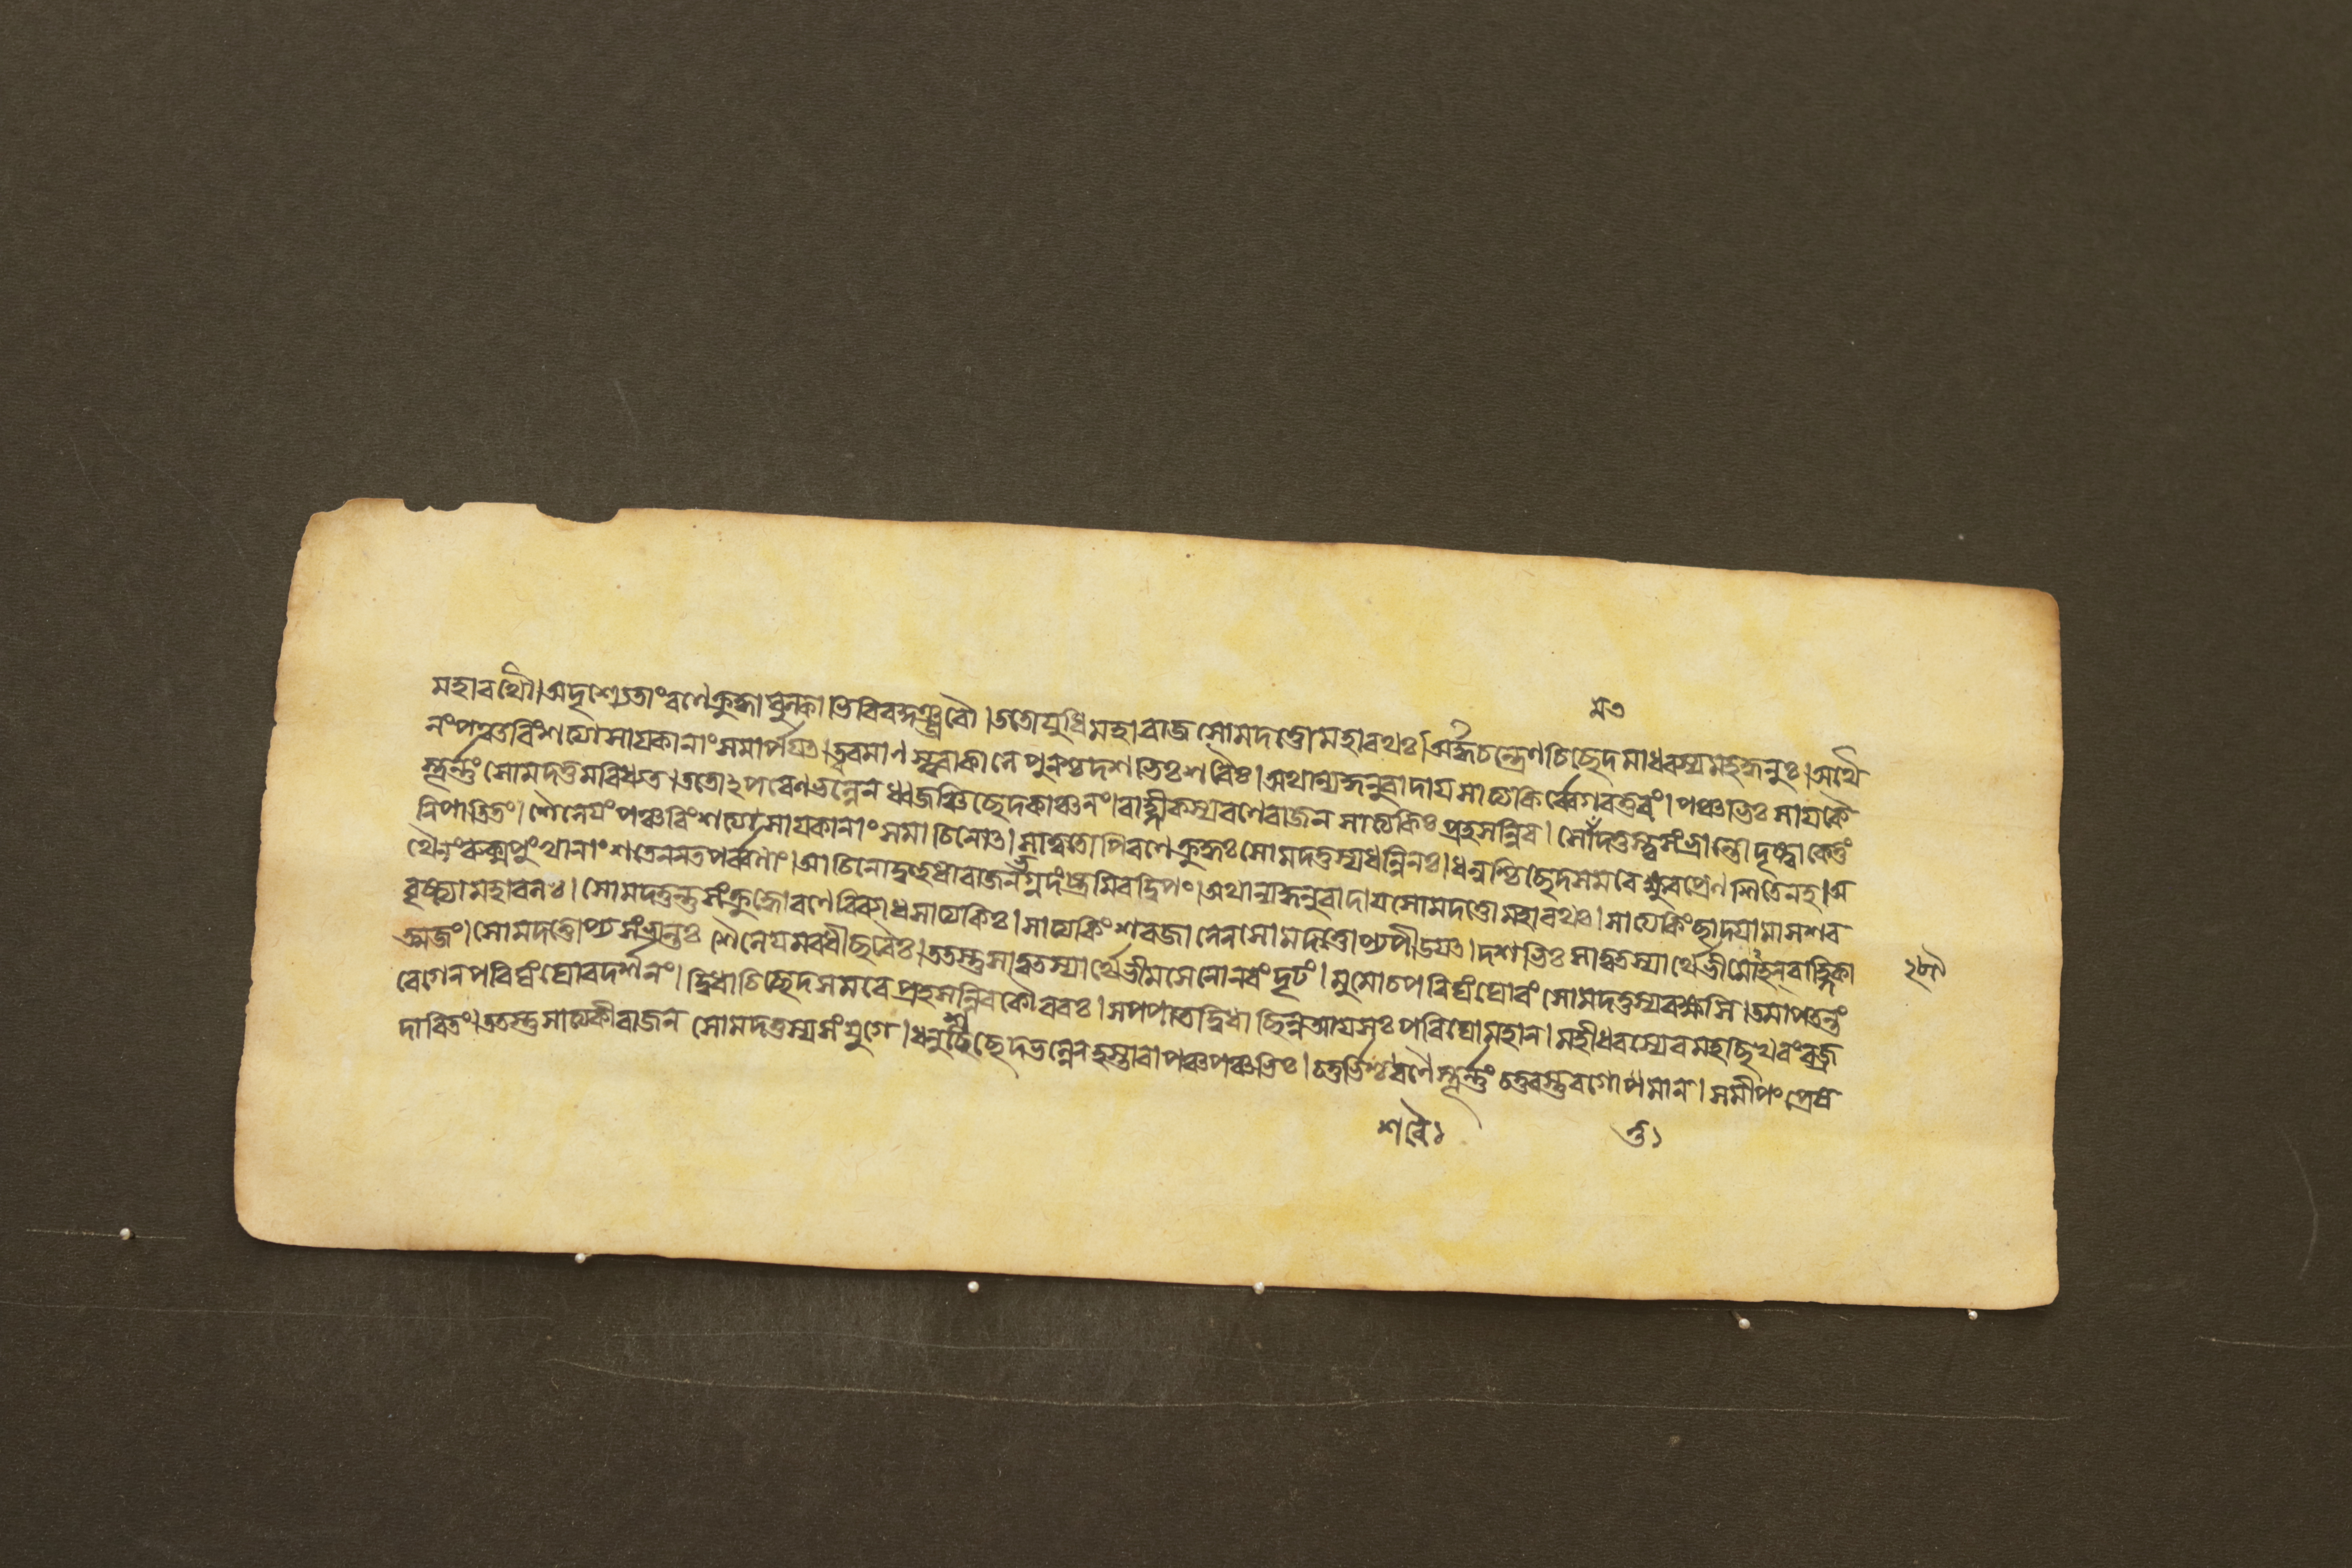 মত
মহারথৌ।অদৃশ্যেতাং রণে ক্রুদ্ধা ততো যুধি মহারাজ সোমদত্তো মহারথঃ। অর্দ্ধচন্দ্রেণ চিছেদ মাধবস্য মহদ্ধনুঃ। অথৈ
নং পঞ্চবিংশত্যা সায়কানাং সমার্পয়ত। ত্বরমাণস্ত্বরাকালে পুনশ্চ দশভিঃ শরৈঃ। অথান্যদ্ধনুরাদায় সাত্যকির্ব্বেগবত্তরং। পঞ্চভিঃ সায়কৈ
স্তূর্ন্নং সোমদত্তমবিধ্যত। ততোঽপরেণ ভল্লেন ধ্বজঞ্চিছেদ কাঞ্চনং। বাহ্লীকস্য রণে রাজন সাত্যকিঃ প্রহসন্নিব। সোমদত্তস্ত্বসংভ্রান্তো দৃষ্ট্বা কেতুং
নিপাতিতং। শৈনেয়ং পঞ্চবিংশত্যা সায়কানাং সমাচিনোৎ। সাত্বতোপি রণে ক্রুদ্ধঃ সোমদত্তস্য ধন্বিনঃ। ধনুশ্চিছেদ সমরে ক্ষুরপ্রেণ শিতেন হ। অ
থৈনং রুক্মপুংখানাং শতেন নতপর্ব্বণাং। আচিনোদ্বহুধা রাজন্ভগ্নদংষ্ট্রমিব দ্বিপং। অথান্যদ্ধনুরাদায় সোমদত্তো মহারথঃ। সাত্যকিং ছাদয়ামাস শর
বৃষ্ট্যা মহাবলঃ। সোমদত্তন্তু সংক্রুদ্ধো রণে বিব্যাধ সাত্যকিঃ। সাত্যকিং শরজালেন সোমদত্তোপ্যপীড়য়ত। দশভিঃ সাত্বতস্যার্থে ভীমোহন বাহ্লিকা
ত্মজং। সোমদত্তোপ্যসংভ্রান্তঃ শৈনেয়মবধীছরৈঃ। ততস্তু সাত্বতস্যার্থে ভীমসেনো নবং দৃঢং। মুমোচ পরিঘং ঘোরং সোমদত্তস্য বক্ষসি। তমাপতন্তং
বেগেন পরিঘং ঘোরদর্শনং। দ্বিধা চিচ্ছেদ সমরে প্রহসন্নিব কৌরবঃ। স পপাত দ্বিধা ছিন্ন আয়সঃ পরিঘো মহান। মহীধরস্যেব মহছিখরং বজ্র
দারিতং। ততস্তু সাত্যকী রাজন সোমদত্তস্য সংযুগে। ধনুশ্চিছেদ ভল্লেন হস্তাবাপঞ্চ পঞ্চভিঃ। চতুর্ভিশ্চ স্তূর্ন্নং চতুরস্তুরগোত্তমান। সমীপং প্রেষ
শরৈঃ
ত্ত১